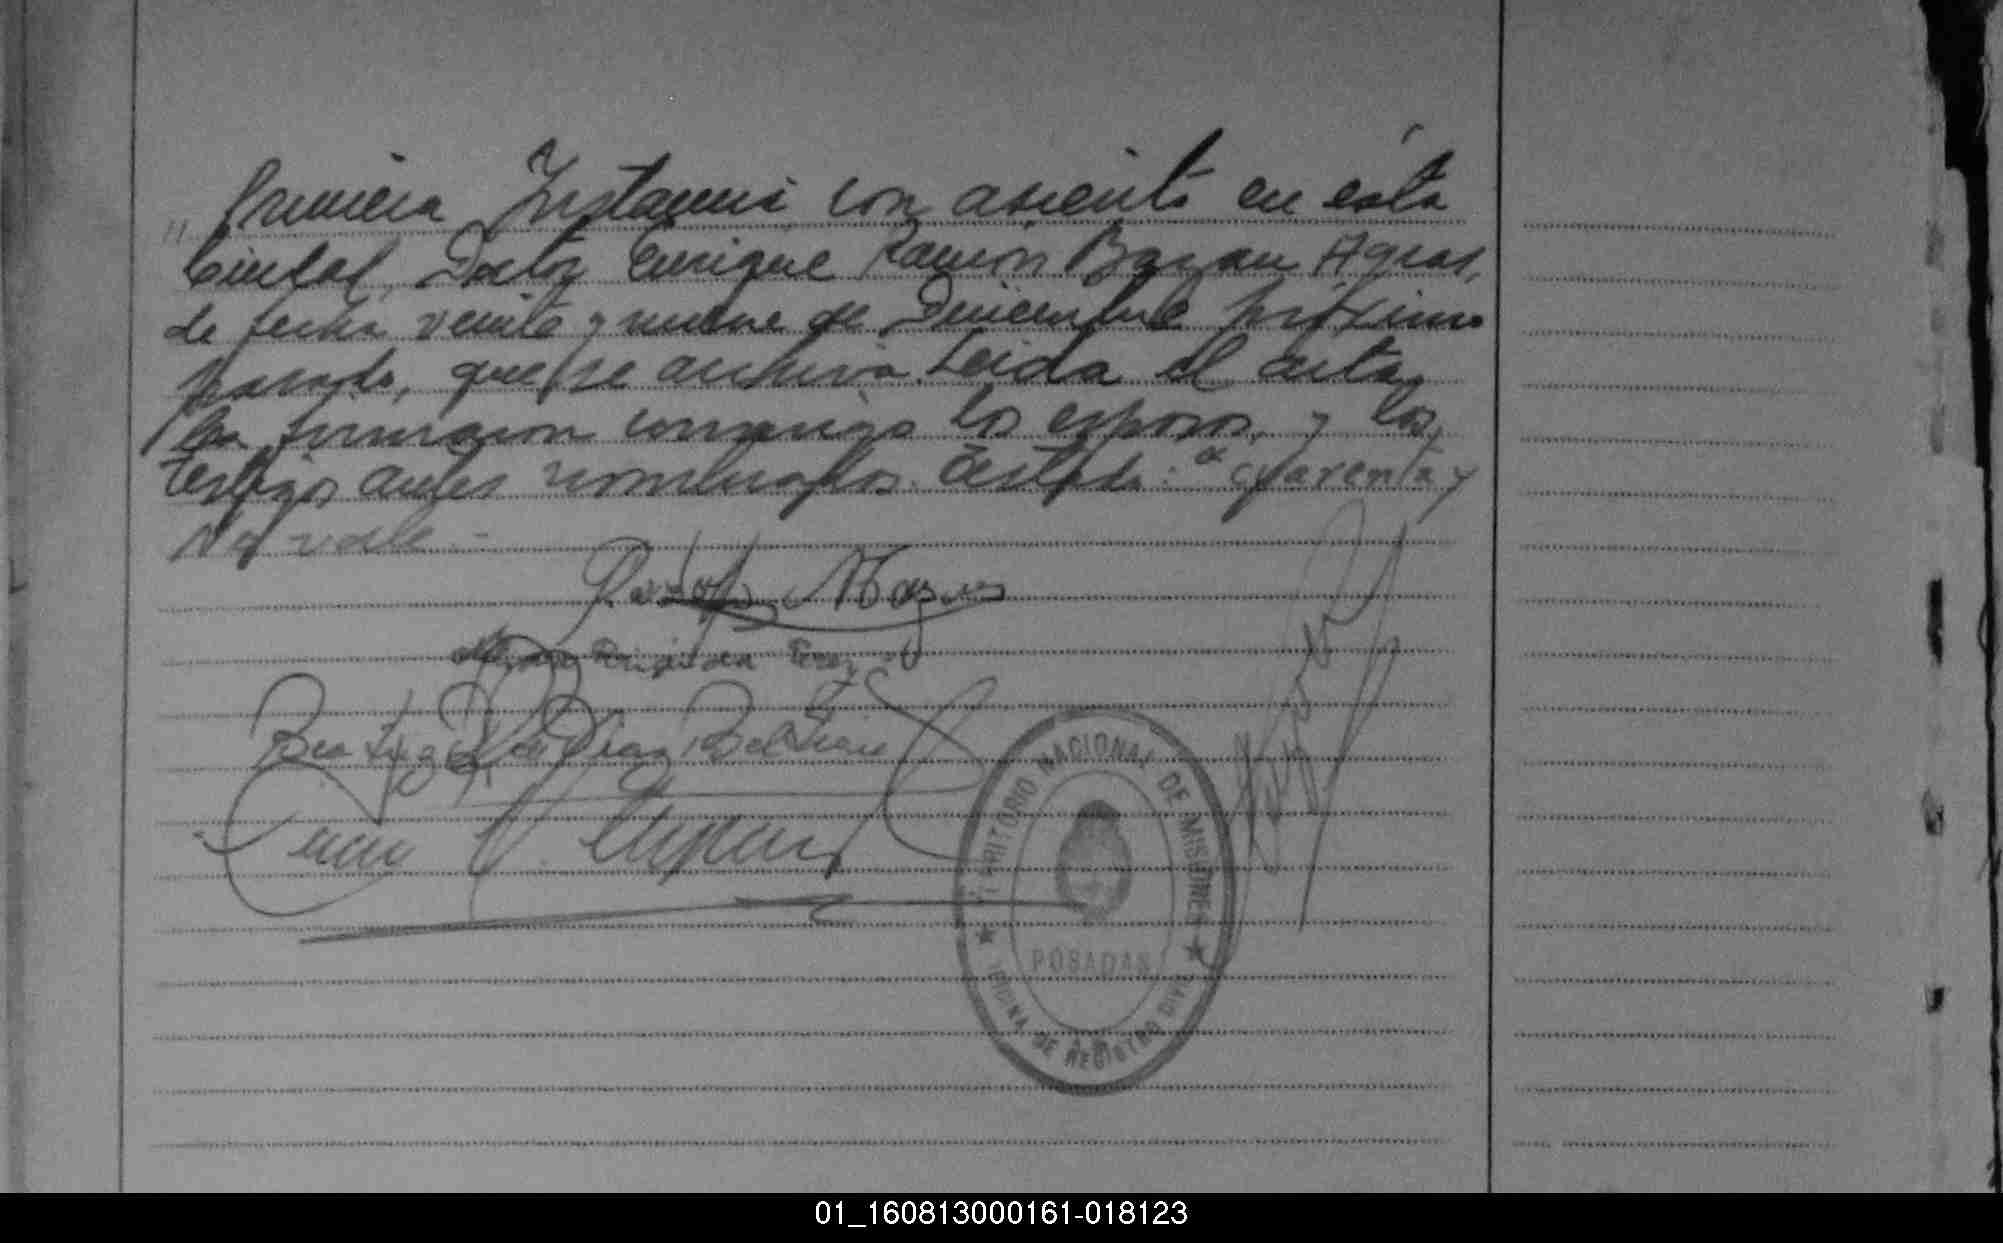 Primera Instancia con asiento en ésta
Ciudad, Doctor Enrique Ramón Bazan Agras,
de fecha veinte y nueve de Diciembre próximo
pasado, que se archiva. Leida el acta,
la firmaron conmigo los esposos, y los
testigos antes nombrados. Testado: "cuarenta y
No vale.-
Rodolfo
Brigida
Beatriz Diaz Beltran
TERRITORIO NACIONAL DE MISIONES
POSADAS
OFICINA DE REGISTRO CIVIL
01_160813000161-018123